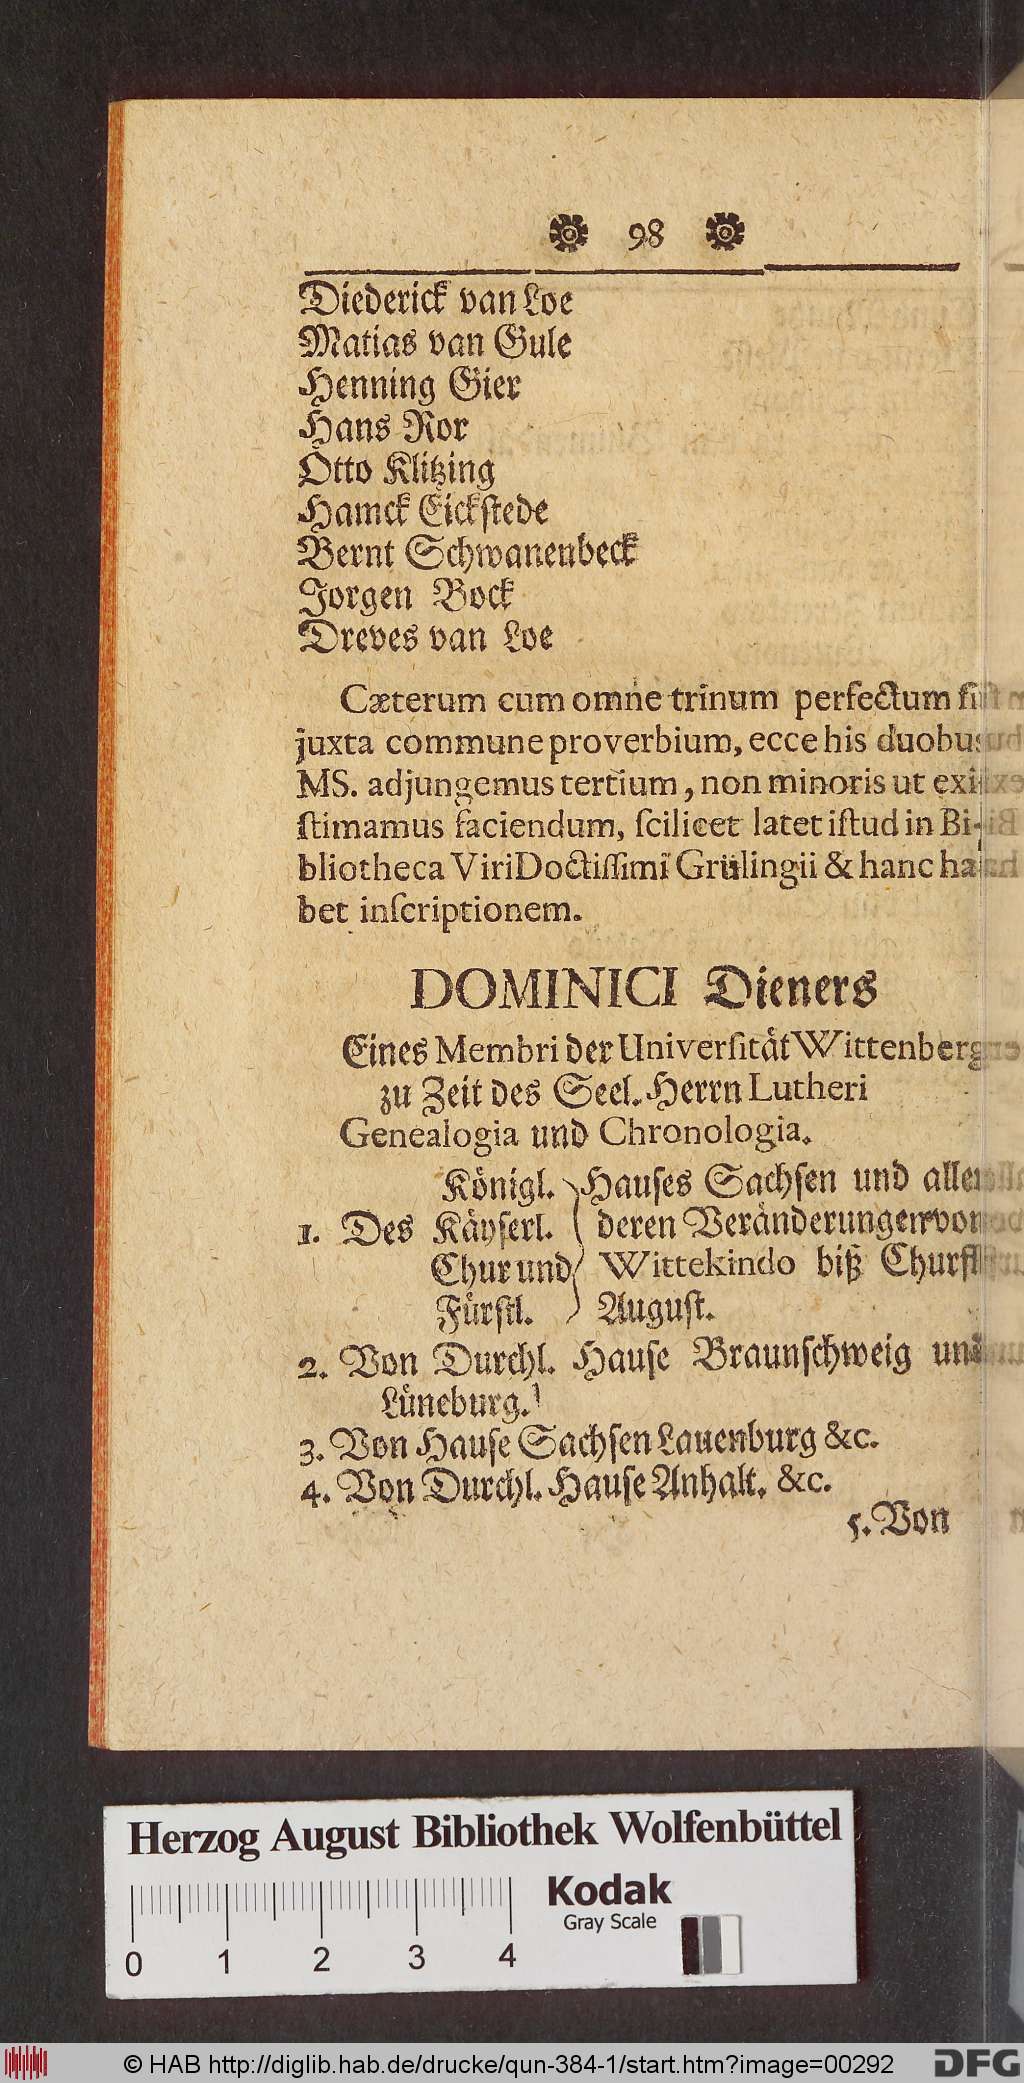 98
Diederick van Loe
Matias van Gule
Henning Gier
Hans Ror
Otto Klitzing
Hamck Eickstede
Bernt Schwanenbeck
Jorgen Bock
Dreves van Loe
Cæterum cum omne trinum perfectum
juxta commune proverbium, ecce his duobus
MS. adjungemus tertium, non minoris ut exi-
ſtimamus faciendum, ſcilicet latet iſtud in Bi-
bliotheca Viri Doctiſſimi Grülingii & hanc ha-
bet inſcriptionem.
DOMINICI Dieners
Eines Membri der Univerſität Wittenberg
zu Zeit des Seel. Herrn Lutheri
Genealogia und Chronologia.
Königl. Hauſes Sachſen und aller
1. Des Käyſerl. deren Veränderungen von
Chur und Wittekindo biß Churfl.
Fürſtl. Auguſt.
2. Von Durchl. Hauſe Braunſchweig und
Lüneburg.
3. Von Hauſe Sachſen Lauenburg &c.
4. Von Durchl. Hauſe Anhalt. &c.
5. Von
Herzog August Bibliothek Wolfenbüttel
Kodak
Gray Scale
0 1 2 3 4
© HAB http://diglib.hab.de/drucke/qun-384-1/start.htm?image=00292
DFG